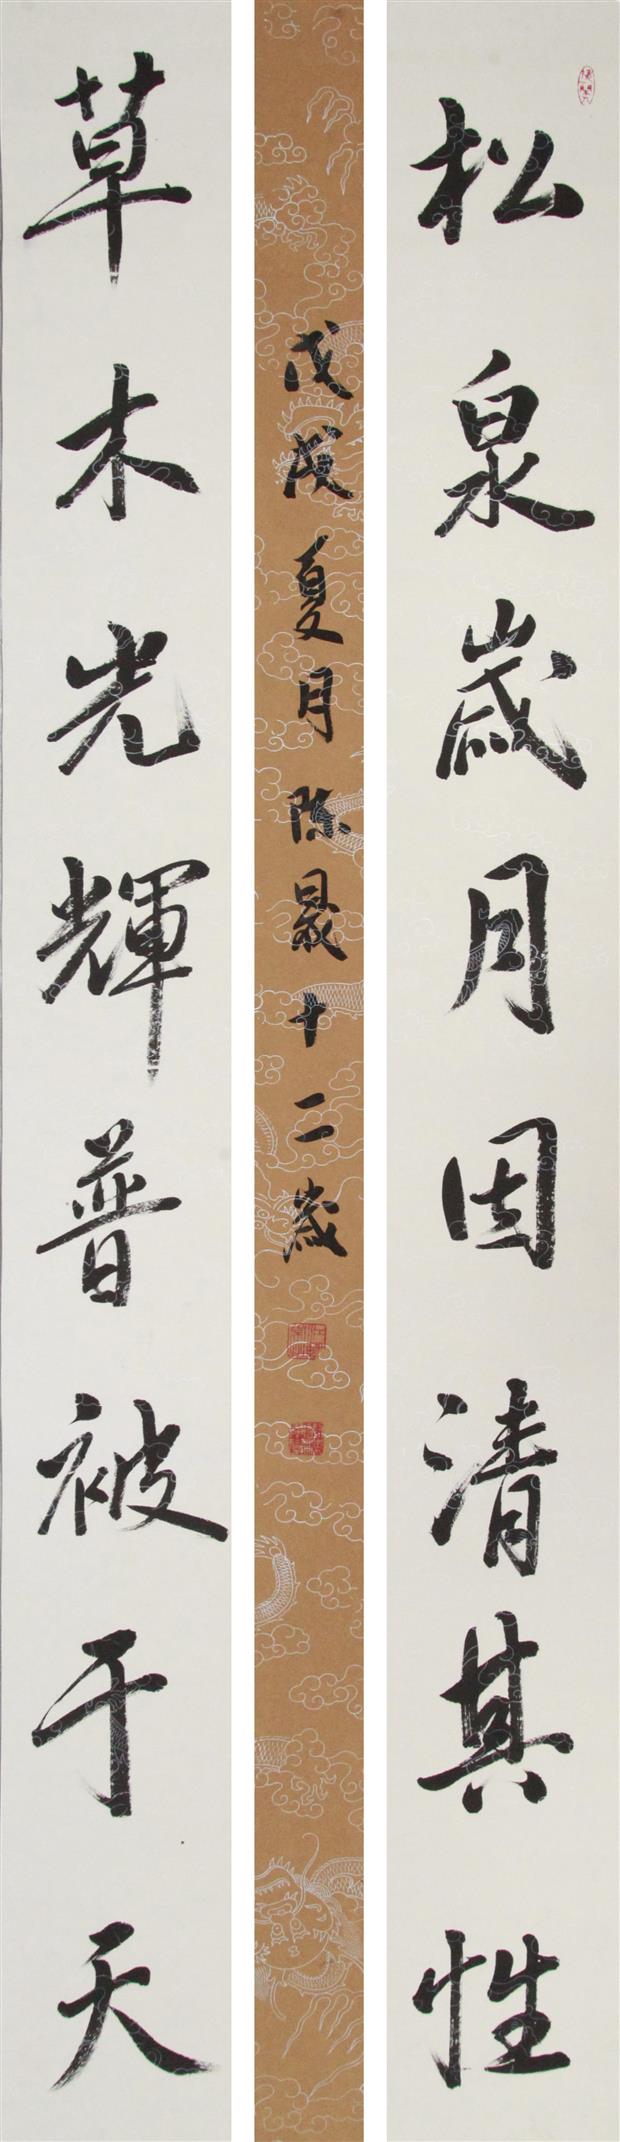 松泉歲月因清其性
草木光輝普被于天
戊戌夏月陈晟十二歲